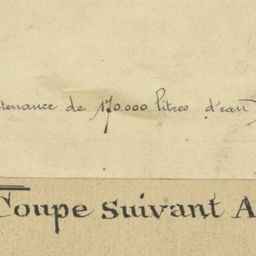 tenance de 170.000 litres d'eau
Coupe suivant A